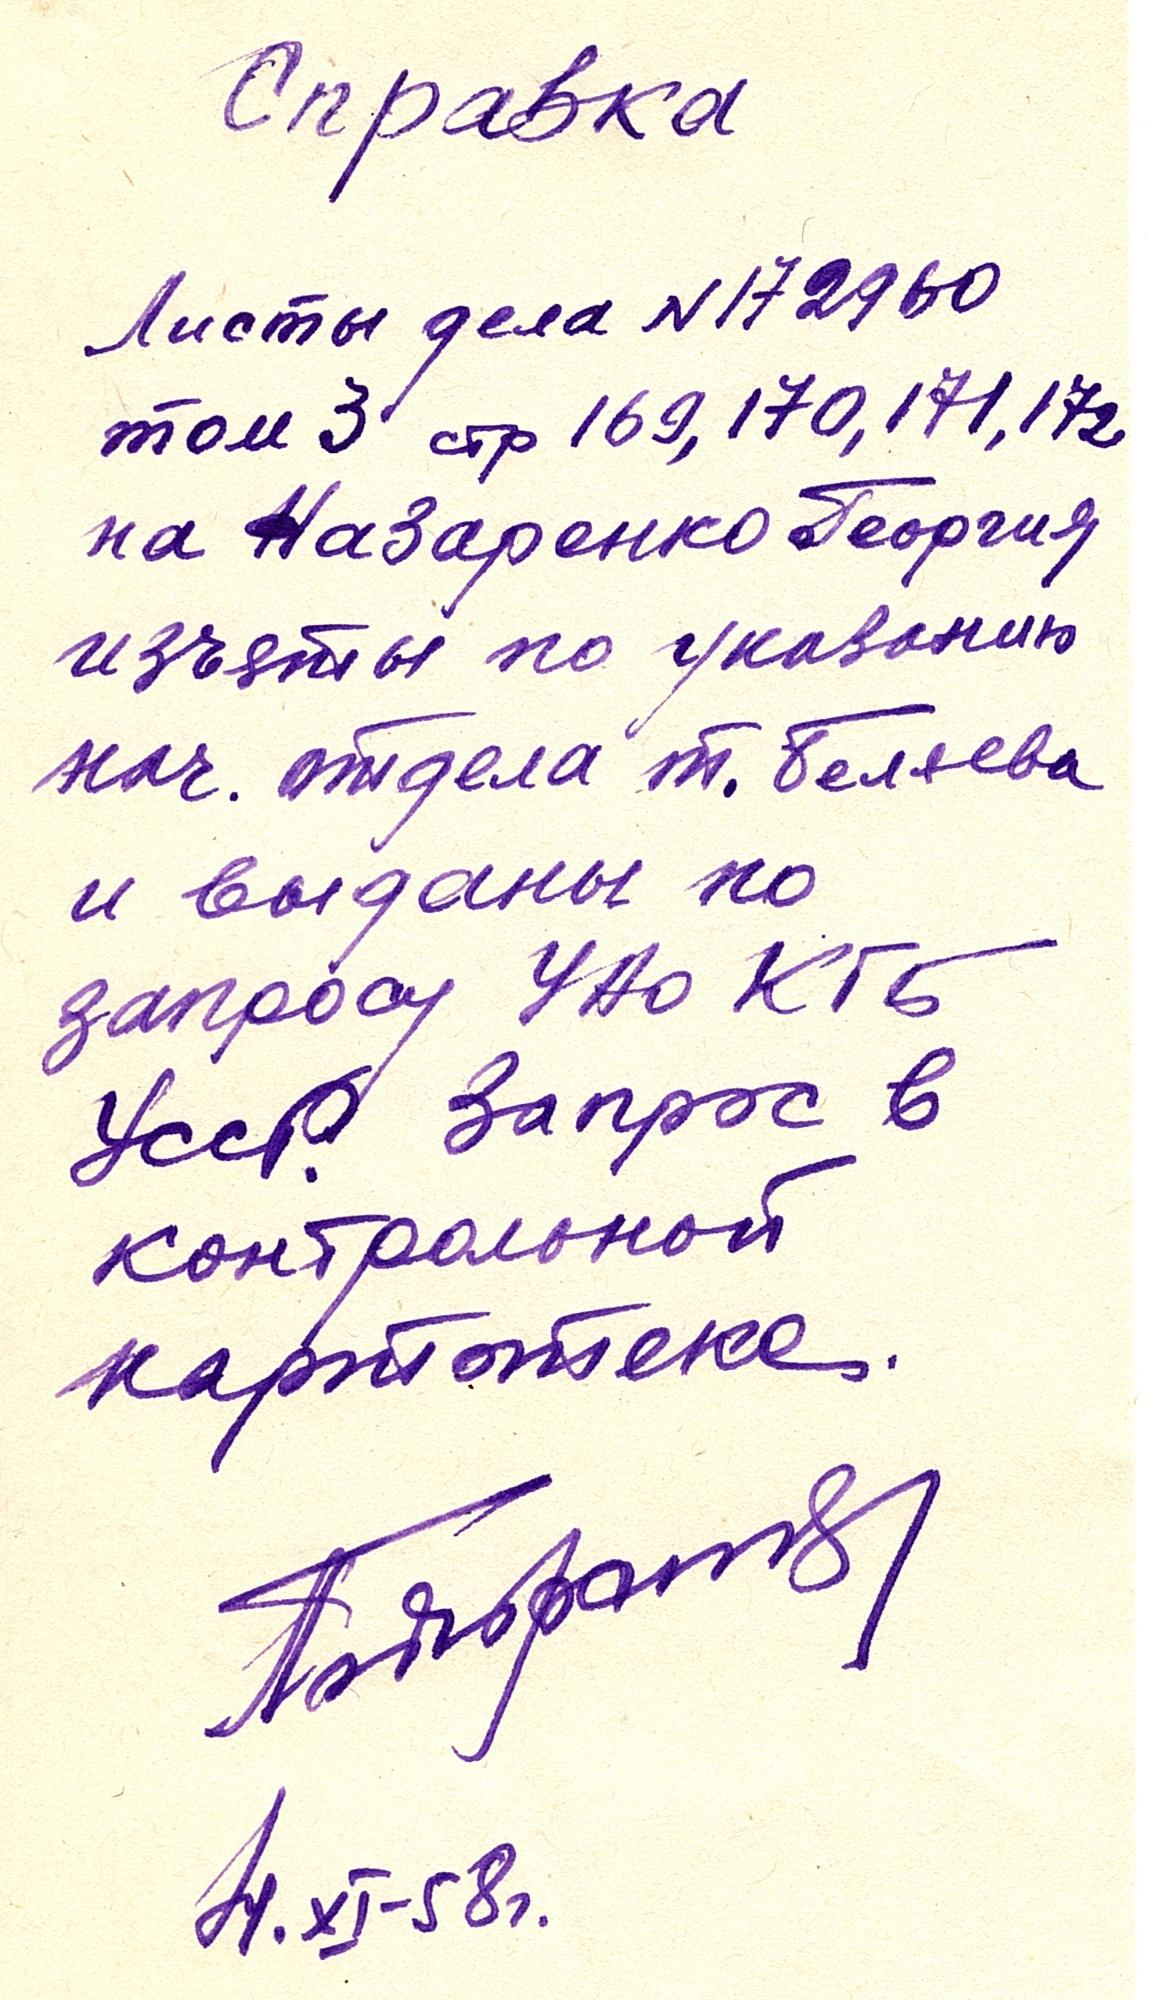 Справка
Листы дела N172960
том 3 стр 169, 170, 171, 172
на Назаренко Георгия
изъяты по указанию
нач. отдела т. Беляева
и выданы по
запросу УАО КГБ
УССР. Запрос в
контрольной
картотеке.
XI-58г.